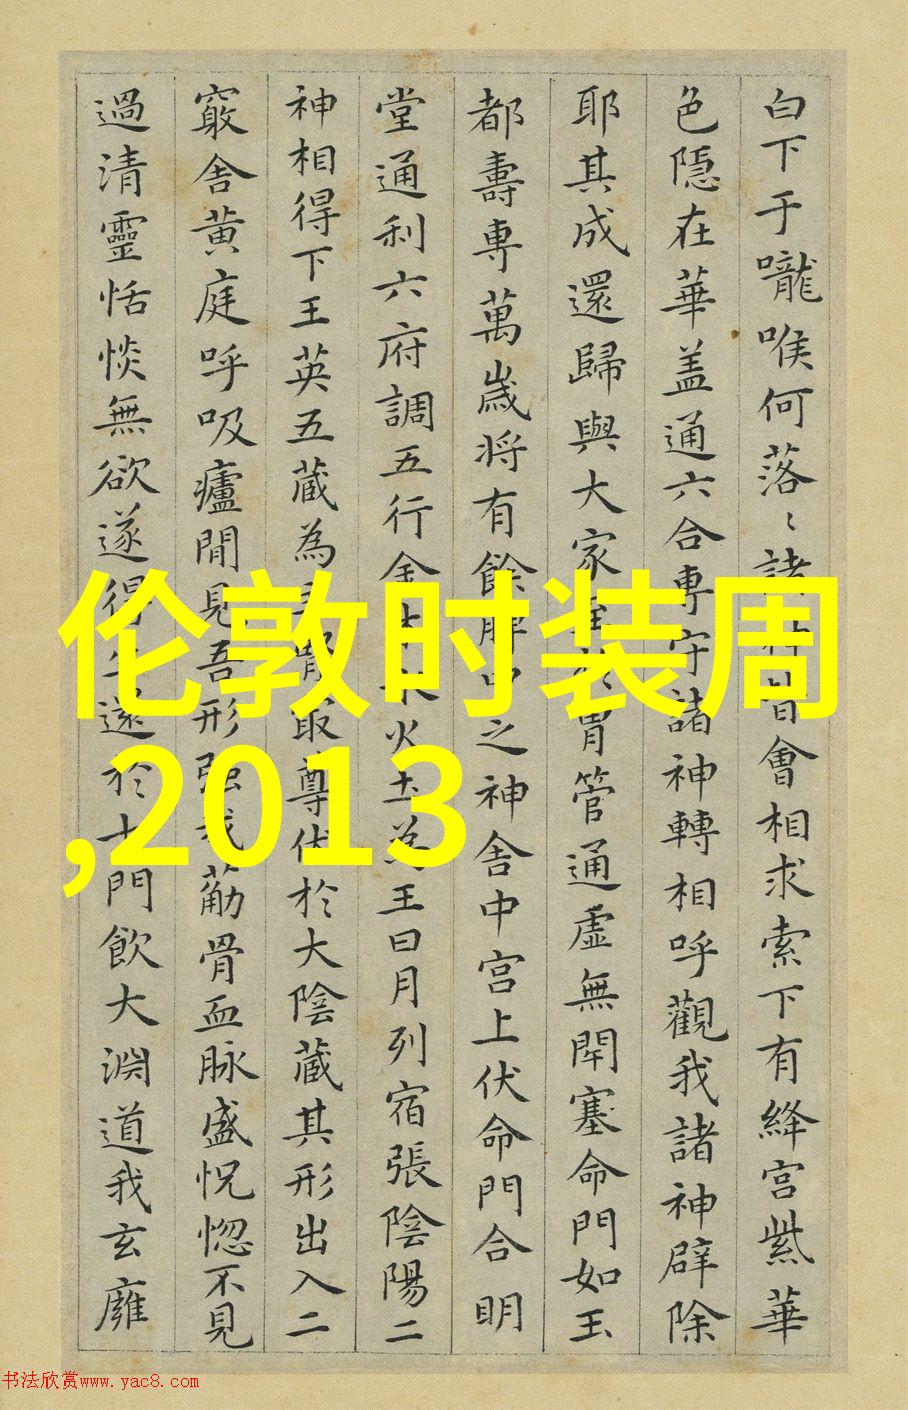 白下于嚨喉何落〻諸神皆會相求索下有絳宫紫華
色隱在華盖通六合專守諸神轉相呼觀我諸神辟除
耶其成還歸與大家至於胃管通虛無閉塞命門如玉
都壽專萬歲将有餘脾中之神舍中宫上伏命門合明
堂通利六府調五行金木水火土為王日月列宿張陰陽二
神相得下王英五藏為主腎最尊伏於大陰藏其形出入二
竅舍黄庭呼吸廬間見吾形强我筋骨血脉盛怳惚不見
過清靈恬惔無欲遂得生還於七門飲大淵道我玄廱
伦敦时装周
,2013
书法欣赏www.yac8.com